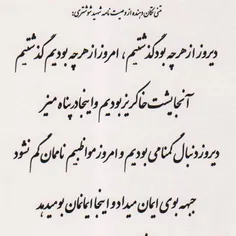 متنی تکان دهنده از وصیت نامه شهید شوشتری:
دیروز از هرچه بود گذشتیم ، امروز از هرچه بودیم گذشتیم
آنجا پشت خاکریز بودیم و اینجا در پناه میز
دیروز دنبال گمنامی بودیم و امروز مواظبیم ناممان گم نشود
جبهه بوی ایمان میداد و اینجا ایمانمان بو میدهد